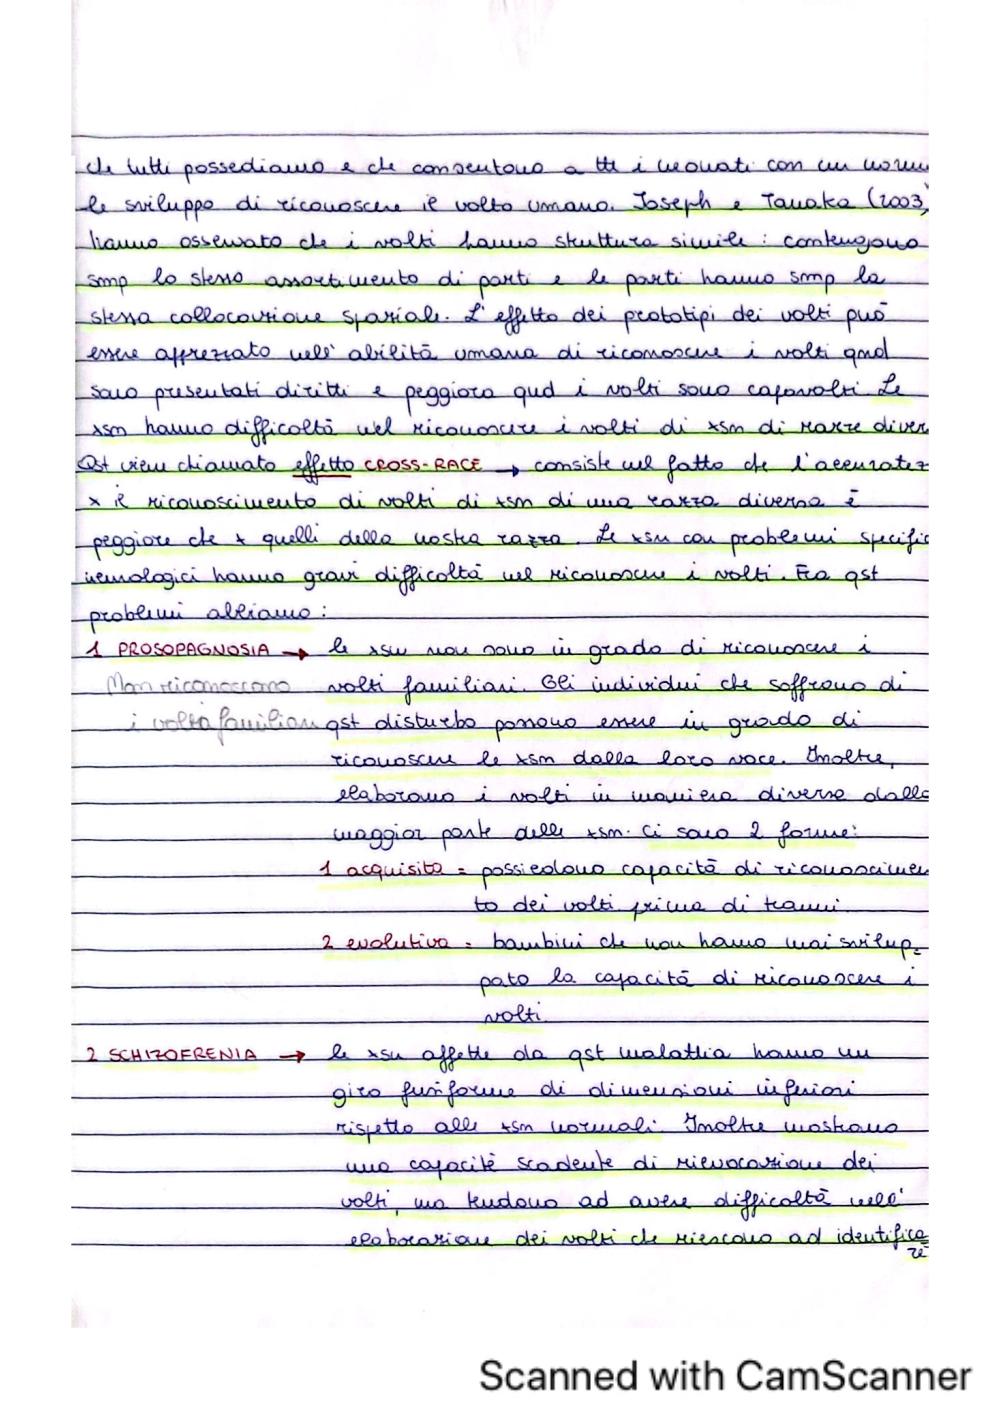 che tutti possediamo e che consentono a tti i neonati con un norma
le sviluppo di riconoscere il volto umano. Joseph e Tanaka (2003)
hanno osservato che i volti hanno struttura simile : contengono
smp lo stesso assortimento di parti e le parti hanno smp la
stessa collocazione spaziale. L'effetto dei prototipi dei volti può
essere apprezzato nell'abilità umana di riconoscere i volti qnd
sono presentati diritti e peggiora qnd i volti sono capovolti. Le
xsn hanno difficoltà nel riconoscere i volti di xsn di razze diver
Qst viene chiamato effetto CROSS-RACE → consiste nel fatto che l'accuratez
x il riconoscimento di volti di xsn di una razza diversa è
peggiore che x quelli della nostra razza. Le xsn con problemi specific
neurologici hanno gravi difficoltà nel riconoscere i volti. Fra qst
problemi abbiamo :
1 PROSOPAGNOSIA → le xsn non sono in grado di riconoscere i
Non riconoscono volti familiari. Gli individui che soffrono di
i volti familiari qst disturbo possono essere in grado di
riconoscere le xsn dalla loro voce. Inoltre,
elaborano i volti in maniera diversa dalla
maggior parte delle xsn. Ci sono 2 forme:
1 acquisita = possiedono capacità di riconoscimen
to dei volti prima di traumi.
2 evolutiva = bambini che non hanno mai svilup=
pato la capacità di riconoscere i
volti.
2 SCHIZOFRENIA → le xsn affette da qst malattia hanno un
giro fusiforme di dimensioni inferiori
rispetto alle xsn normali. Inoltre mostrano
una capacità scadente di rievocazione dei
volti, ma tendono ad avere difficoltà nell'
elaborazione dei volti che riescono ad identifica
re
Scanned with CamScanner